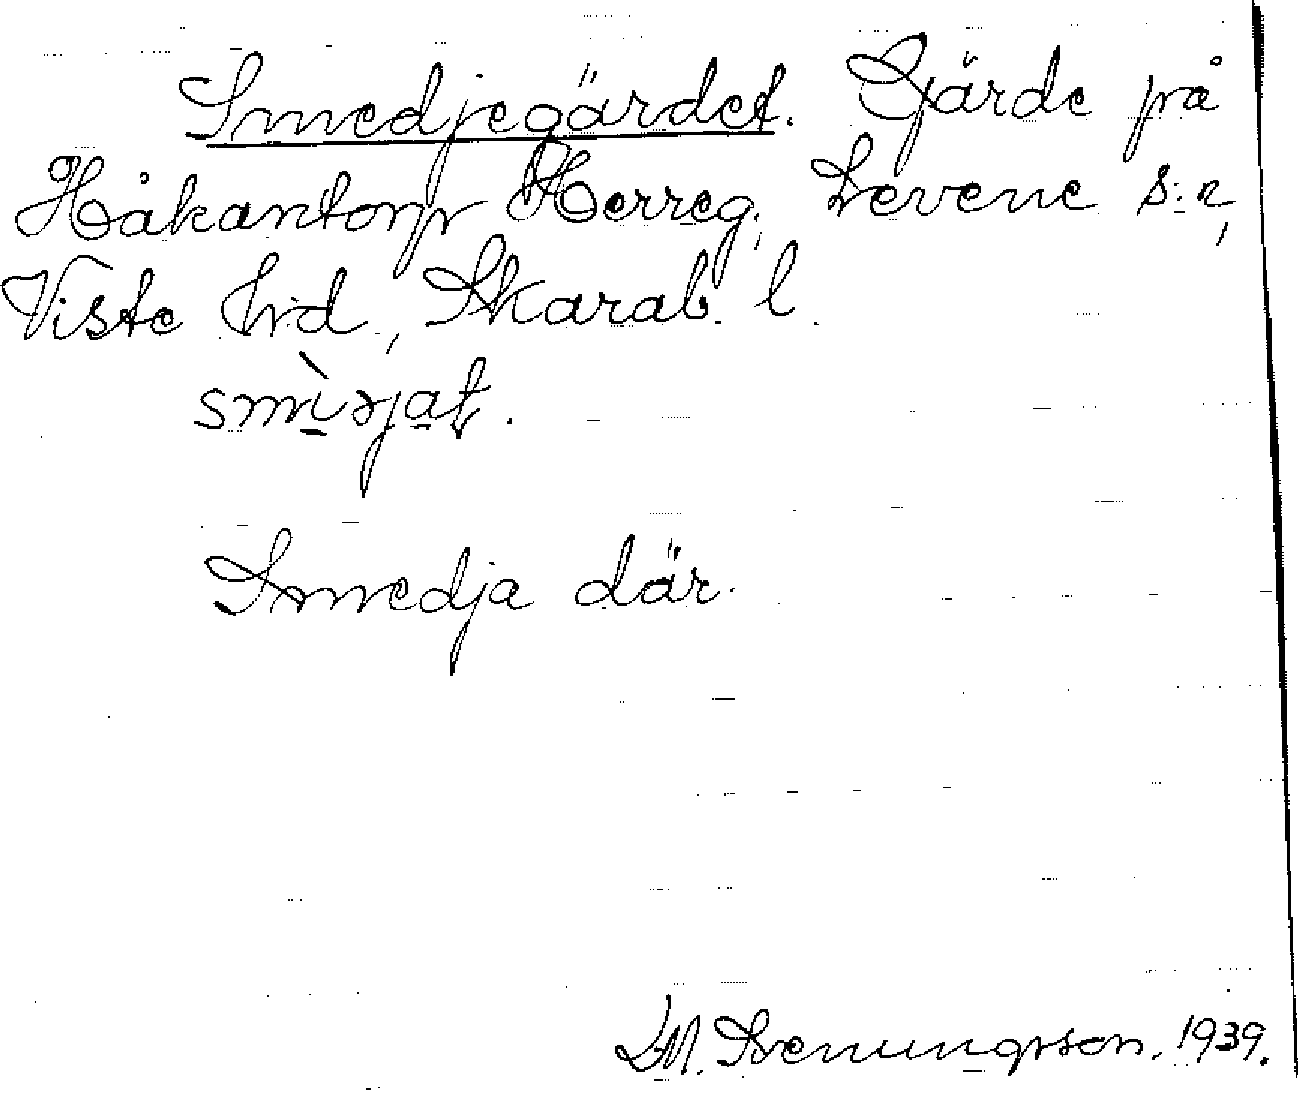 Smedjegärdet. Gärde på
Håkantorp Herreg., Levene s:n,
Viste hd, Skarab. l.
smìrjat.
Smedja där.
M. Svenungsson. 1939.